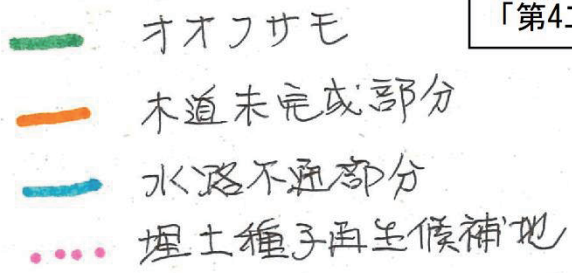 「第4
オオフサモ
木道未完成部分
水路不通部分
埋土種子再生候補地